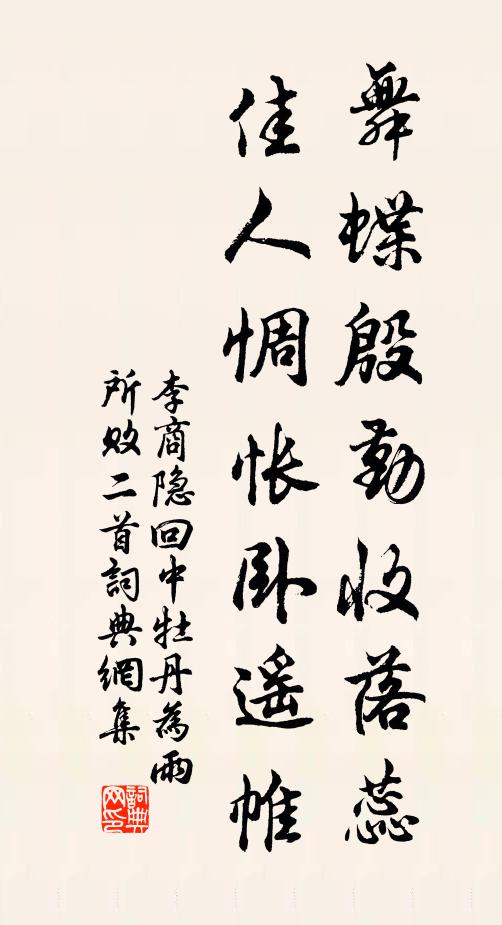 舞蝶殷勤收落蕊
佳人惆怅卧遥帷
李商隐回中牡丹為雨
所败二首詞典網集
詞典网印